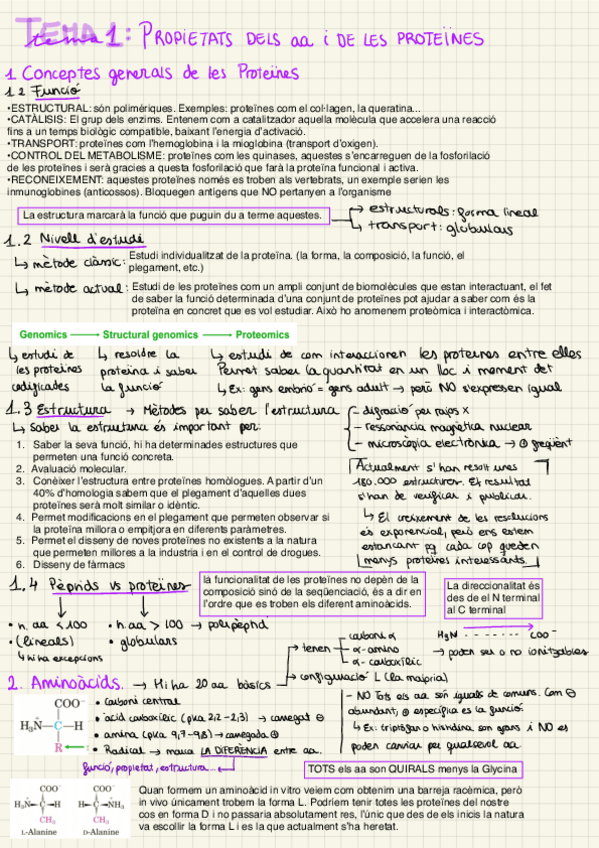 TEMA 1: PROPIETATS DELS aa i DE LES PROTEÏNES
1. Conceptes generals de les Proteïnes
1.2 Funció
•ESTRUCTURAL: són polimériques. Exemples: proteïnes com el col·lagen, la queratina...
•CATÀLISIS: El grup dels enzims. Entenem com a catalitzador aquella molècula que accelera una reacció
fins a un temps biològic compatible, baixant l'energia d'activació.
•TRANSPORT: proteïnes com l'hemoglobina i la mioglobina (transport d'oxigen).
•CONTROL DEL METABOLISME: proteïnes com les quinases, aquestes s'encarreguen de la fosforilació
de les proteïnes i serà gracies a questa fosforilació que farà la proteïna funcional i activa.
•RECONEIXEMENT: aquestes proteïnes només es troben als vertebrats, un exemple serien les
inmunoglobines (anticossos). Bloquegen antígens que NO pertanyen a l'organisme
La estructura marcarà la funció que puguin du a terme aquestes.
estructurals: forma lineal
transport: globulars
1.2 Nivell d'estudi
mètode clàssic: Estudi individualitzat de la proteïna. (la forma, la composició, la funció, el
plegament, etc.)
mètode actual: Estudi de les proteïnes com un ampli conjunt de biomolècules que estan interactuant, el fet
de saber la funció determinada d'una conjunt de proteïnes pot ajudar a saber com és la
proteïna en concret que es vol estudiar. Això ho anomenem proteòmica i interactòmica.
Genomics → Structural genomics → Proteomics
estudi de les proteines codificades
resoldre la proteïna i saber la funció
estudi de com interaccionen les proteines entre elles
Permet saber la quantitat en un lloc i moment det
Ex: gens embrió = gens adult → però NO s'expressen igual
1.3 Estructura → Mètodes per saber l'estructura
- difracció per rajos x
- ressonància magnètica nuclear
- microscòpia electrònica → ⊕ freqüent
Saber la estructura és important per:
1. Saber la seva funció, hi ha determinades estructures que
permeten una funció concreta.
2. Avaluació molecular.
3. Conèixer l'estructura entre proteïnes homòlogues. A partir d'un
40% d'homologia sabem que el plegament d'aquelles dues
proteïnes serà molt similar o idèntic.
4. Permet modificacions en el plegament que permeten observar si
la proteïna millora o empitjora en diferents paràmetres.
5. Permet el disseny de noves proteïnes no existents a la natura
que permeten millores a la industria i en el control de drogues.
6. Disseny de fàrmacs
Actualment s'han resolt unes
180.000 estructures. El resultat
s'han de verificar i publicar.
El creixement de les resolucions
és exponencial, però ens estem
estancant pq cada cop queden
menys proteïnes interessants.
1.4 Pèptids vs proteïnes
la funcionalitat de les proteïnes no depèn de la
composició sinó de la seqüenciació, és a dir en
l'ordre que es troben els diferent aminoàcids.
La direccionalitat és
des de el N terminal
al C terminal
• n. aa < 100
• (lineals)
hi ha excepcions
• n. aa > 100 → polipèptid
• globulars
H₃N - - - - - - COO⁻
→ poden ser o no ionitzables
2. Aminoàcids. → Hi ha 20 aa bàsics
tenen
carboni α
α-amino
α-carboxílic
configuració L (la majoria)
COO⁻
H₃N⁺—C—H
R
• Carboni central
• àcid carboxílic (pka 2,2-2,3) → carregat ⊖
• amina (pka 9,7-9,8) → carregada ⊕
• Radical → marca LA DIFERÈNCIA entre aa.
funció, propietat, estructura
- NO tots els aa són iguals de comuns. Com ⊖
abundant, ⊕ específica es la funció
Ex: triptòfan o histidina son grans i NO es
poden canviar per qualsevol aa
TOTS els aa son QUIRALS menys la Glycina
COO⁻
H₃N⁺—C—H
CH₃
L-Alanine
COO⁻
H—C—NH₃⁺
CH₃
D-Alanine
Quan formem un aminoàcid in vitro veiem com obtenim una barreja racèmica, però
in vivo únicament trobem la forma L. Podríem tenir totes les proteïnes del nostre
cos en forma D i no passaria absolutament res, l'únic que des de els inicis la natura
va escollir la forma L i es la que actualment s'ha heretat.